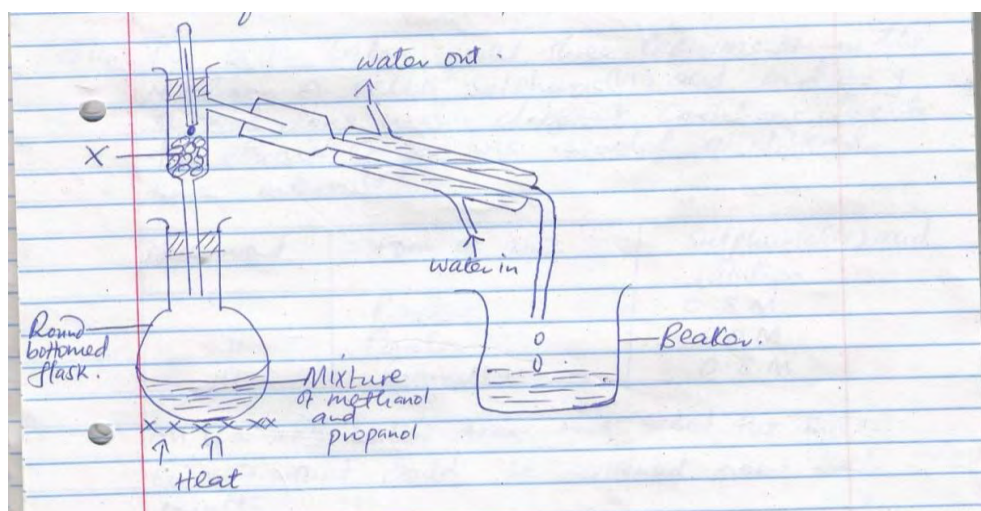 water out.
X
water in
Round
bottomed
flask.
Mixture
of methanol
and
propanol
Beaker.
Heat